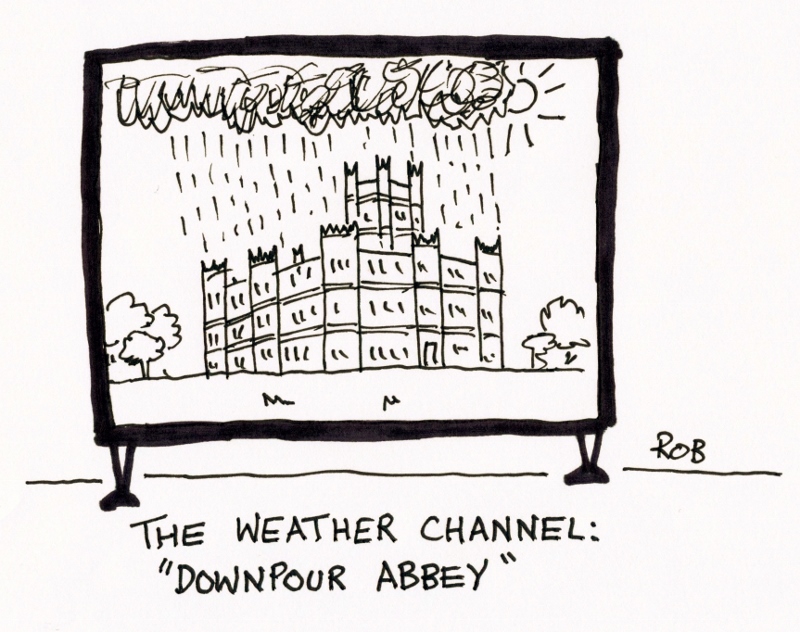 ROB
THE WEATHER CHANNEL:
"DOWNPOUR ABBEY"